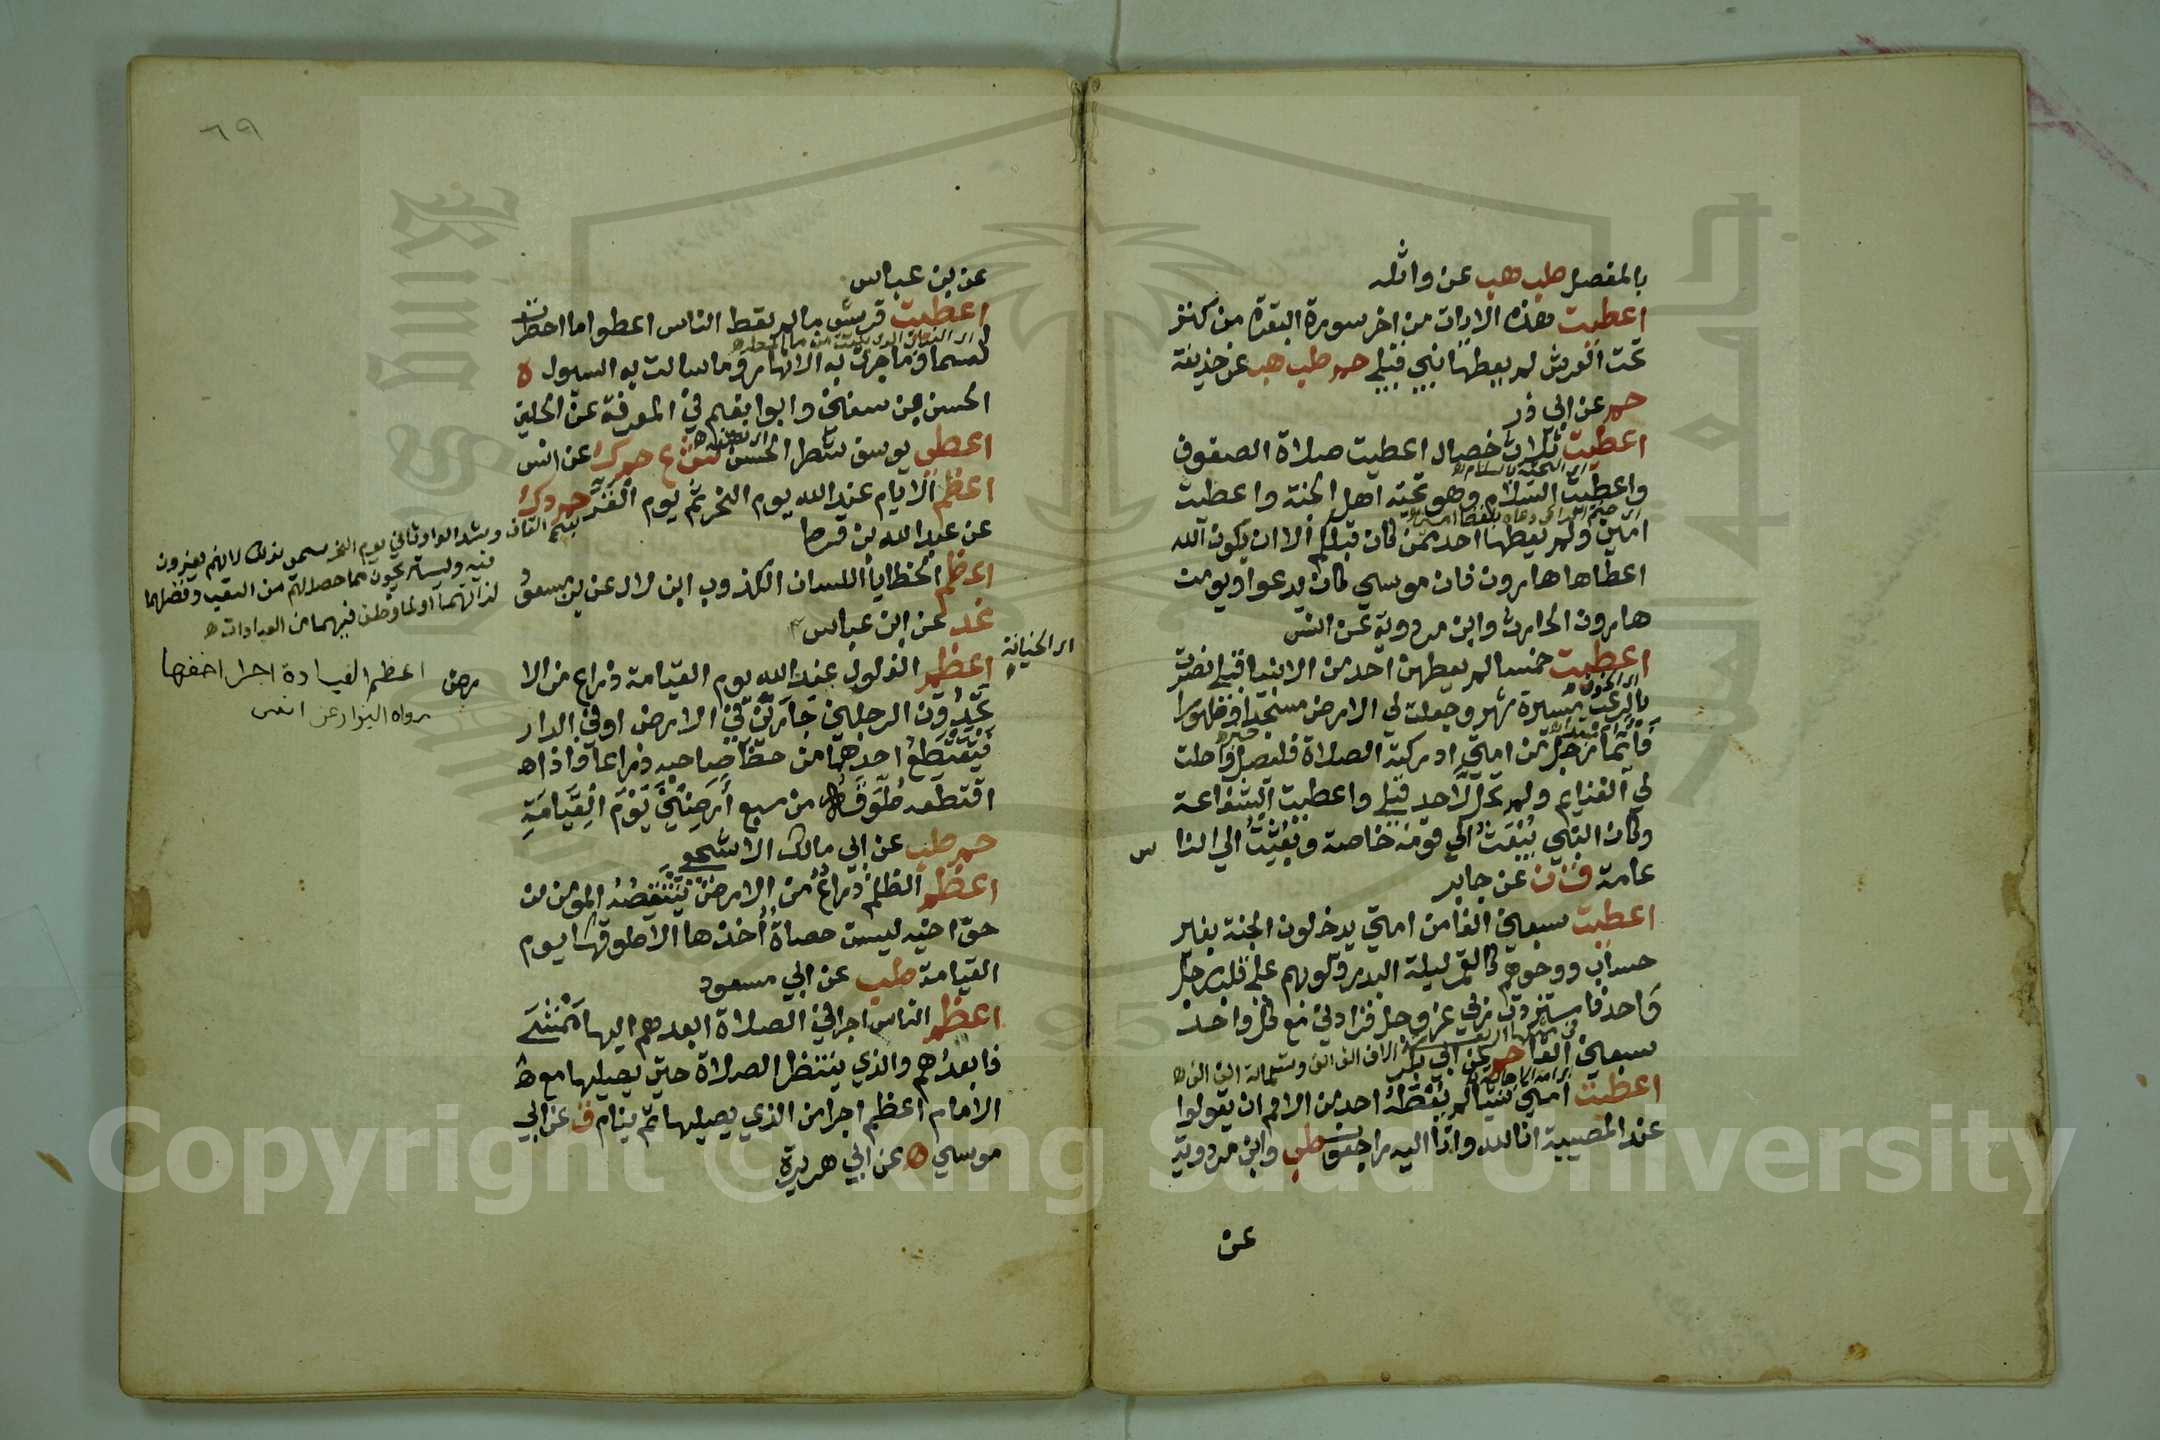 بالمفصل طب هب عن واثله
اعطيت هذه الايات من اخر سورة البقرة من كنز
تحت العرش لم يعطها نبي قبلي حم طب هب عن حذيفة
حم عن ابي ذر
اعطيت ثلاث خصال اعطيت صلاة الصفوف
واعطيت السلام وهو تحية اهل الجنة واعطيت
امين ولم يعطها احد ممن كان قبلكم الا ان يكون الله
اعطاها هارون فان موسي كان يدعوا ويومن
هارون الحارث وابن مردوية عن انس
اعطيت خمسا لم يعطهن احد من الانبيا قبلي نصرت
بالرعب مسيرة شهر وجعلت لي الارض مسجدا وطهورا
فايما رجل من امتي ادركته الصلاة فليصل واحلت
لي الغنايم ولم تحل لاحد قبلي واعطيت الشفاعة
وكان النبي يبعث الي قومه خاصة وبعثت الي النا س
عامة ق ن عن جابر
اعطيت سبعين الفا من امتي يدخلون الجنة بغير
حساب ووجوههم كالقمر ليلة البدر قلوبهم علي قلب رجل
واحد فاستزدت ربي عز وجل فزادني مع كل واحد
سبعين الفا حم عن ابي بكر
اعطيت امتي شيئا لم يعطه احد من الامم ان يقولوا
عند المصيبة انا لله وانا اليه راجعون طب وابن مردوية
عن
٦٩
عن بن عباس
اعطيت قريش ما لم يعط الناس اعطوا ما امطرت
السما وما جرت به الانهار وما سالت به السيول ه
الحسن بن سفين وابوا نعيم في المعرفة عن الحليس
اعطي يوسف شطر الحسن ش ع حم ك عن انس
اعظم الايام عند الله يوم النحر ثم يوم القر حم د ك
عن عبد الله بن قرط
اعظم الخطايا اللسان الكذوب ابن لال عن بن مسعود
عد عن ابن عباس
اعظم الغلول عند الله يوم القيامة ذراع من الا
اي الخيانة
تجدون الرجلين جارين في الارض او في الدار
فيقتطع احدهما من حظ صاحبه ذراعا فاذا
اقتطعه طوقه من سبع ارضين يوم القيامة
حم طب عن ابي مالك الاشجعي
اعظم الظلم ذراع من الارض ينتقصه المومن من
حق اخيه ليست حصاة اخذها الا طوقها يوم
القيامة طب عن ابي مسعود
اعظم الناس اجرا في الصلاة ابعدهم اليها ممشي
فابعدهم والذي ينتظر الصلاة حتي يصليها مع
الامام اعظم اجرا من الذي يصليها ثم ينام ق عن ابي
موسي ه عن ابي هريرة
بفتح القاف وشد الرا وثاني يوم النحر سمي بذلك لانهم يقرون
فيه ويستريحون مما حصل لهم من التعب وفضلهما
لذاتهما او لما وظف فيهما من العبادات ه
اعظم العيادة اجرا اخفها
رواه البزار عن